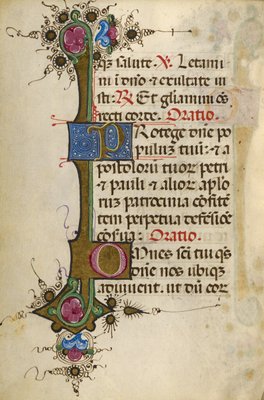 q̃ salute. V. Letami
ni i dño ⁊ exultate iu
sti: R Et gliamini õs
recti corde. Oratio.
Protege dñe po
pulũ tuũ: ⁊ a
postolorũ tuor petri
⁊ pauli ⁊ alior aplo
rum patrocinia cõfitẽ
tem perpetua defẽsiõe
cõserua: Oratio.
Omnes sci tui q̃s
dñe nos ubiq̃
adiuuent. ut dũ eor